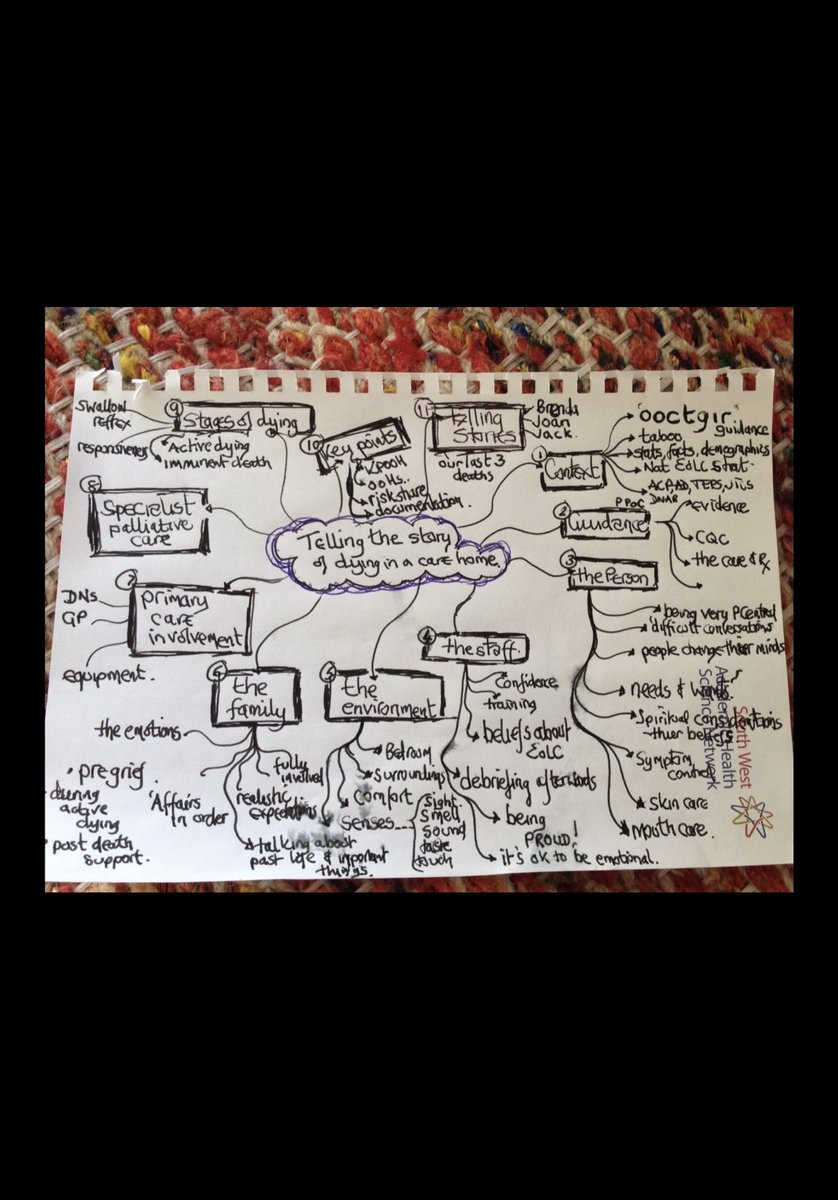 Telling the story
of dying in a care home.
1
Context
'ooctgir'
guidance
taboo
stats, facts, demographics
Not EoLC strat.
ACP, AD, TEPS, JICS
DNAR
2
Guidance
PPoC
evidence
CQC
the care & Rx
3
the Person
being very PCentred
'difficult conversations
people change their minds
needs & wants.
Spiritual considerations
their beliefs
Symptom
control
Skin care
Mouth care.
4
the staff.
Confidence
training
beliefs about
EoLC
debriefing afterwards
being
PROUD!
it's ok to be emotional.
5
the
environment
Bedroom
Surroundings
Comfort
senses
Sight
smell
sound
taste
touch
6
the
family
the emotions
pregrief.
during
active
dying
post death
support.
'Affairs
in order
fully
involved
realistic
expectations
talking about
past life & important
things.
7
primary
care
involvement
DNs
GP
equipment.
8
Specialist
palliative
care
9
Stages of dying
Swallow
reflex
responsiveness
Active dying
imminent death
10
Key points
OOHs..
risk share
documentation.
11
Telling
Stories
Brenda
Joan
Jack.
our last 3
deaths
South West
Academic Health
Science Network